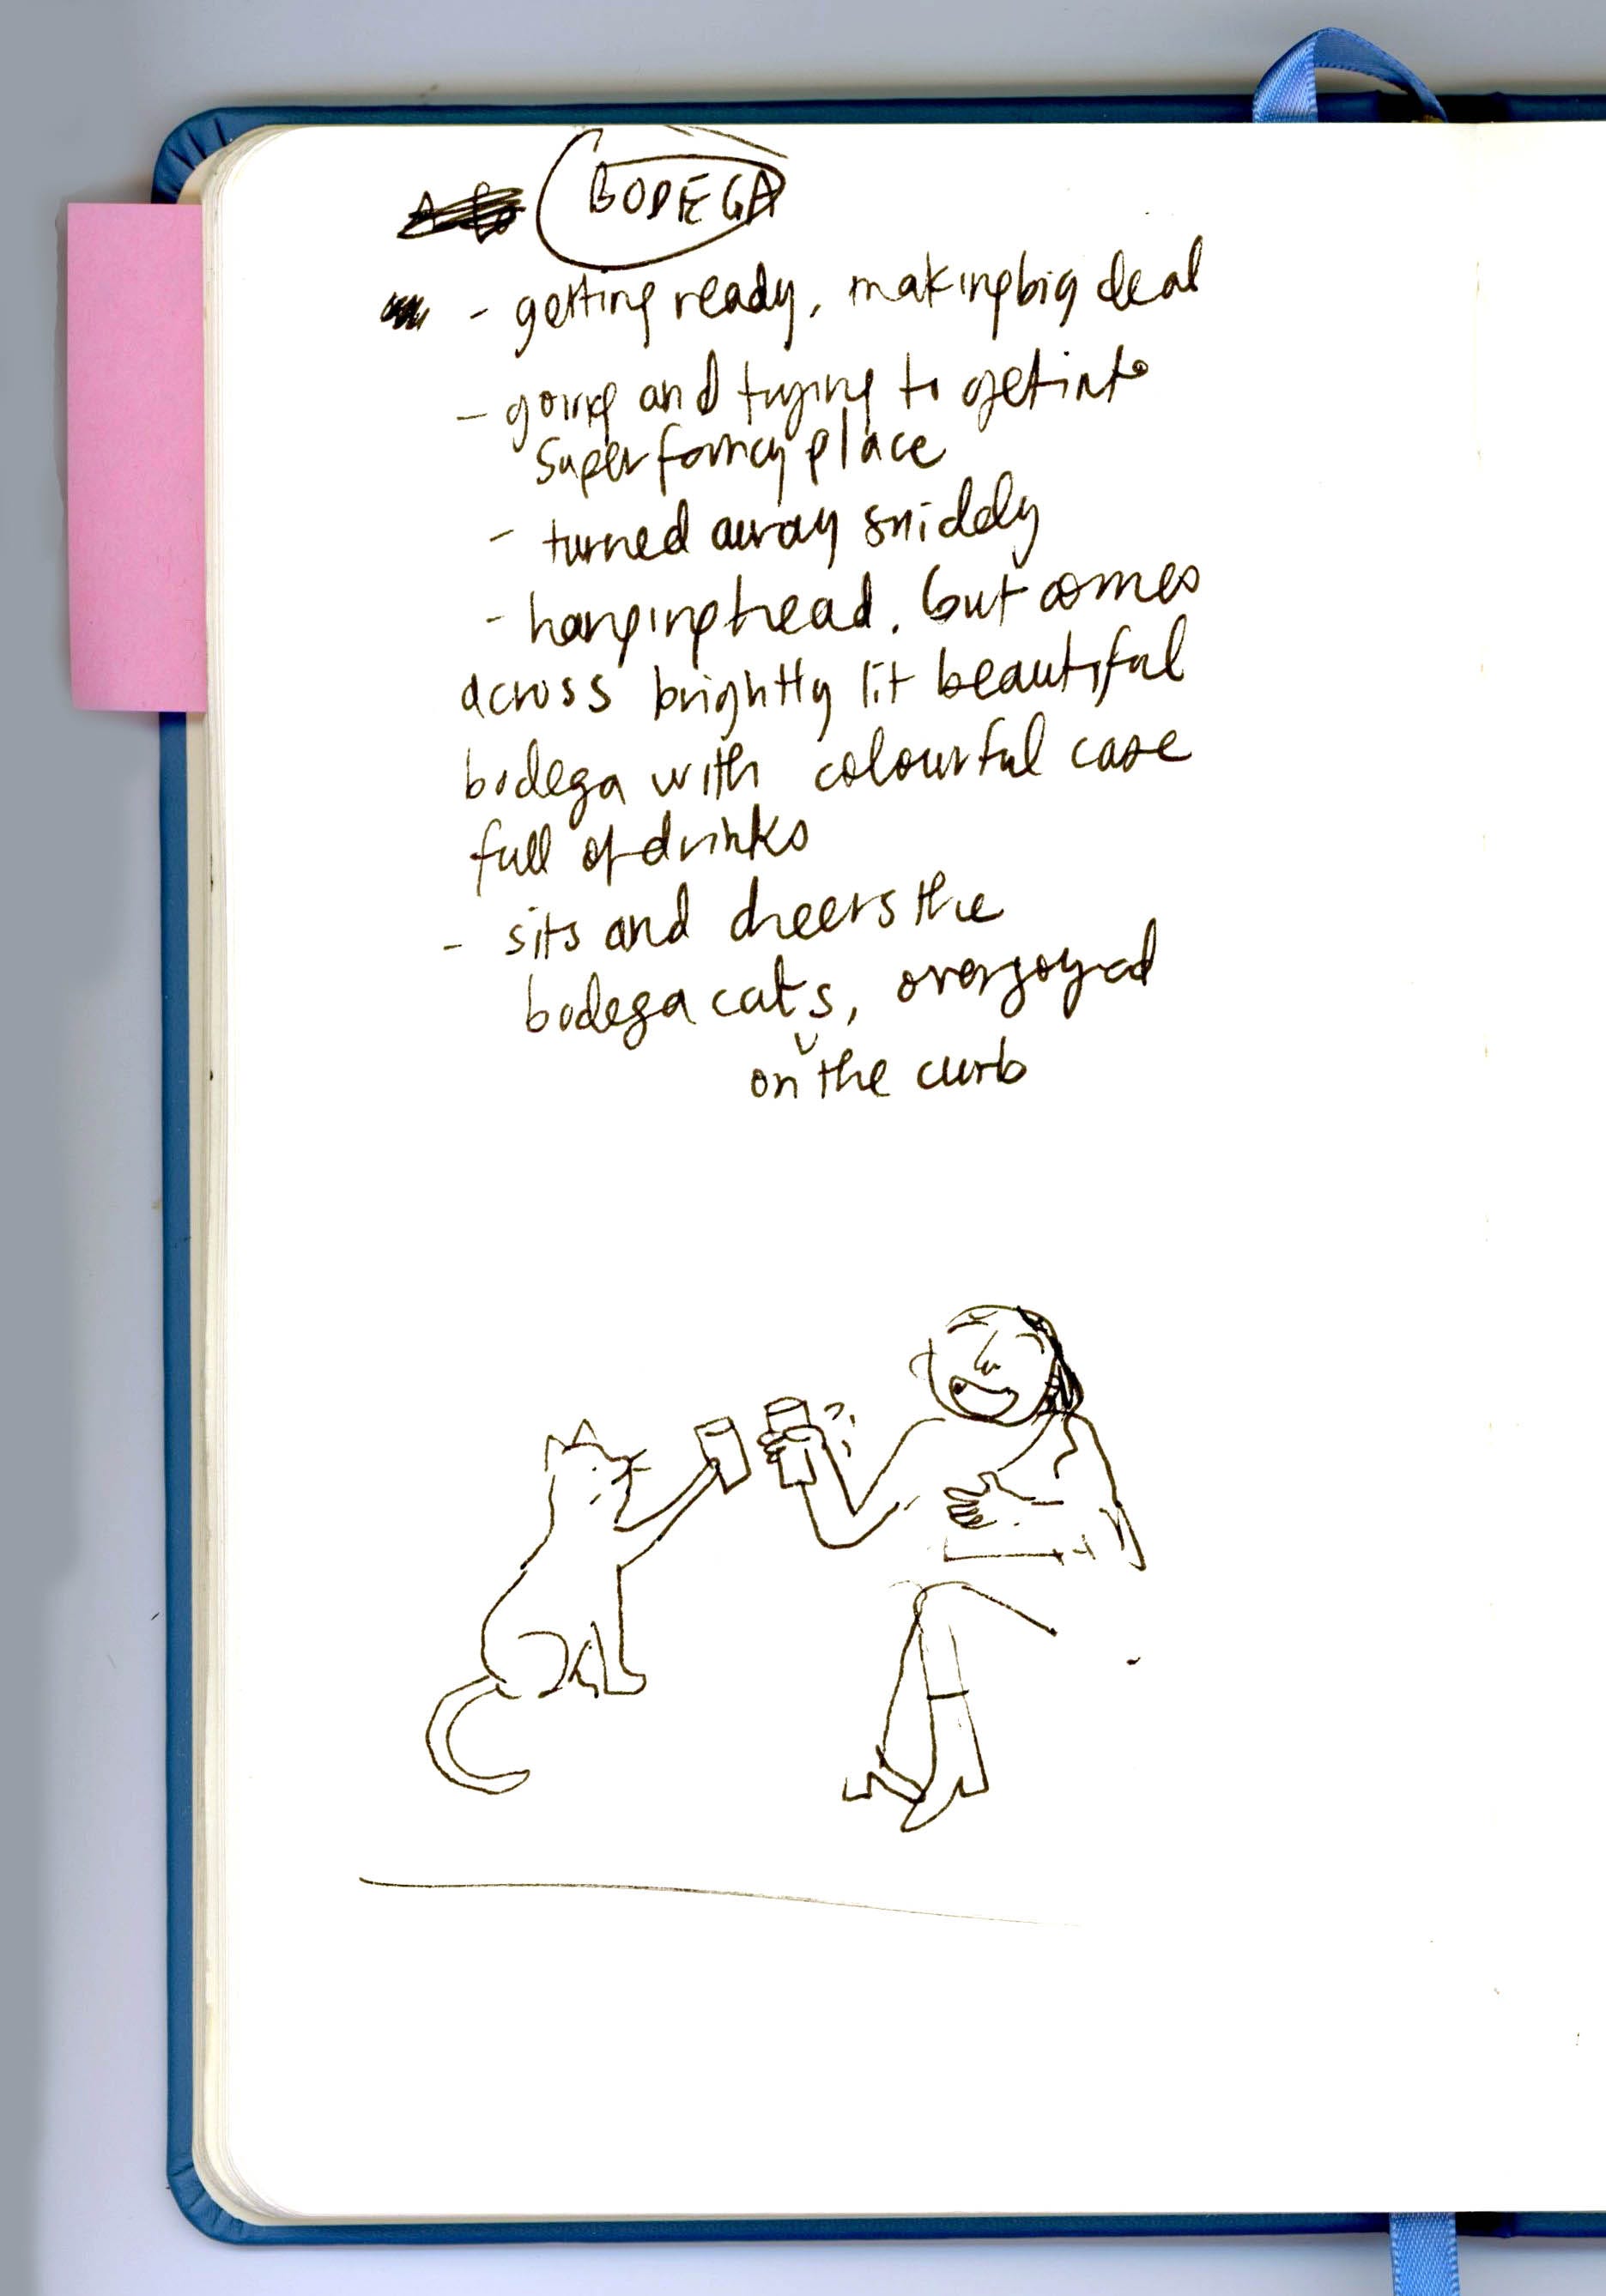 BODEGA
- getting ready, making big deal
- going and trying to get into
super fancy place
- turned away sniddly
- hanging head, but comes
across brightly lit beautiful
bodega with colourful case
full of drinks
- sits and cheers the
bodega cats, overjoyed
on the curb